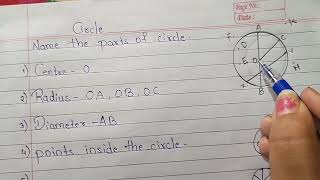 Page No:
Date:
Circle
Name the parts of circle.
1) Centre - O
2) Radius - OA, OB, OC
3) Diameter - AB
4) points inside the circle.
A
F.
D
C
E
O
B
H